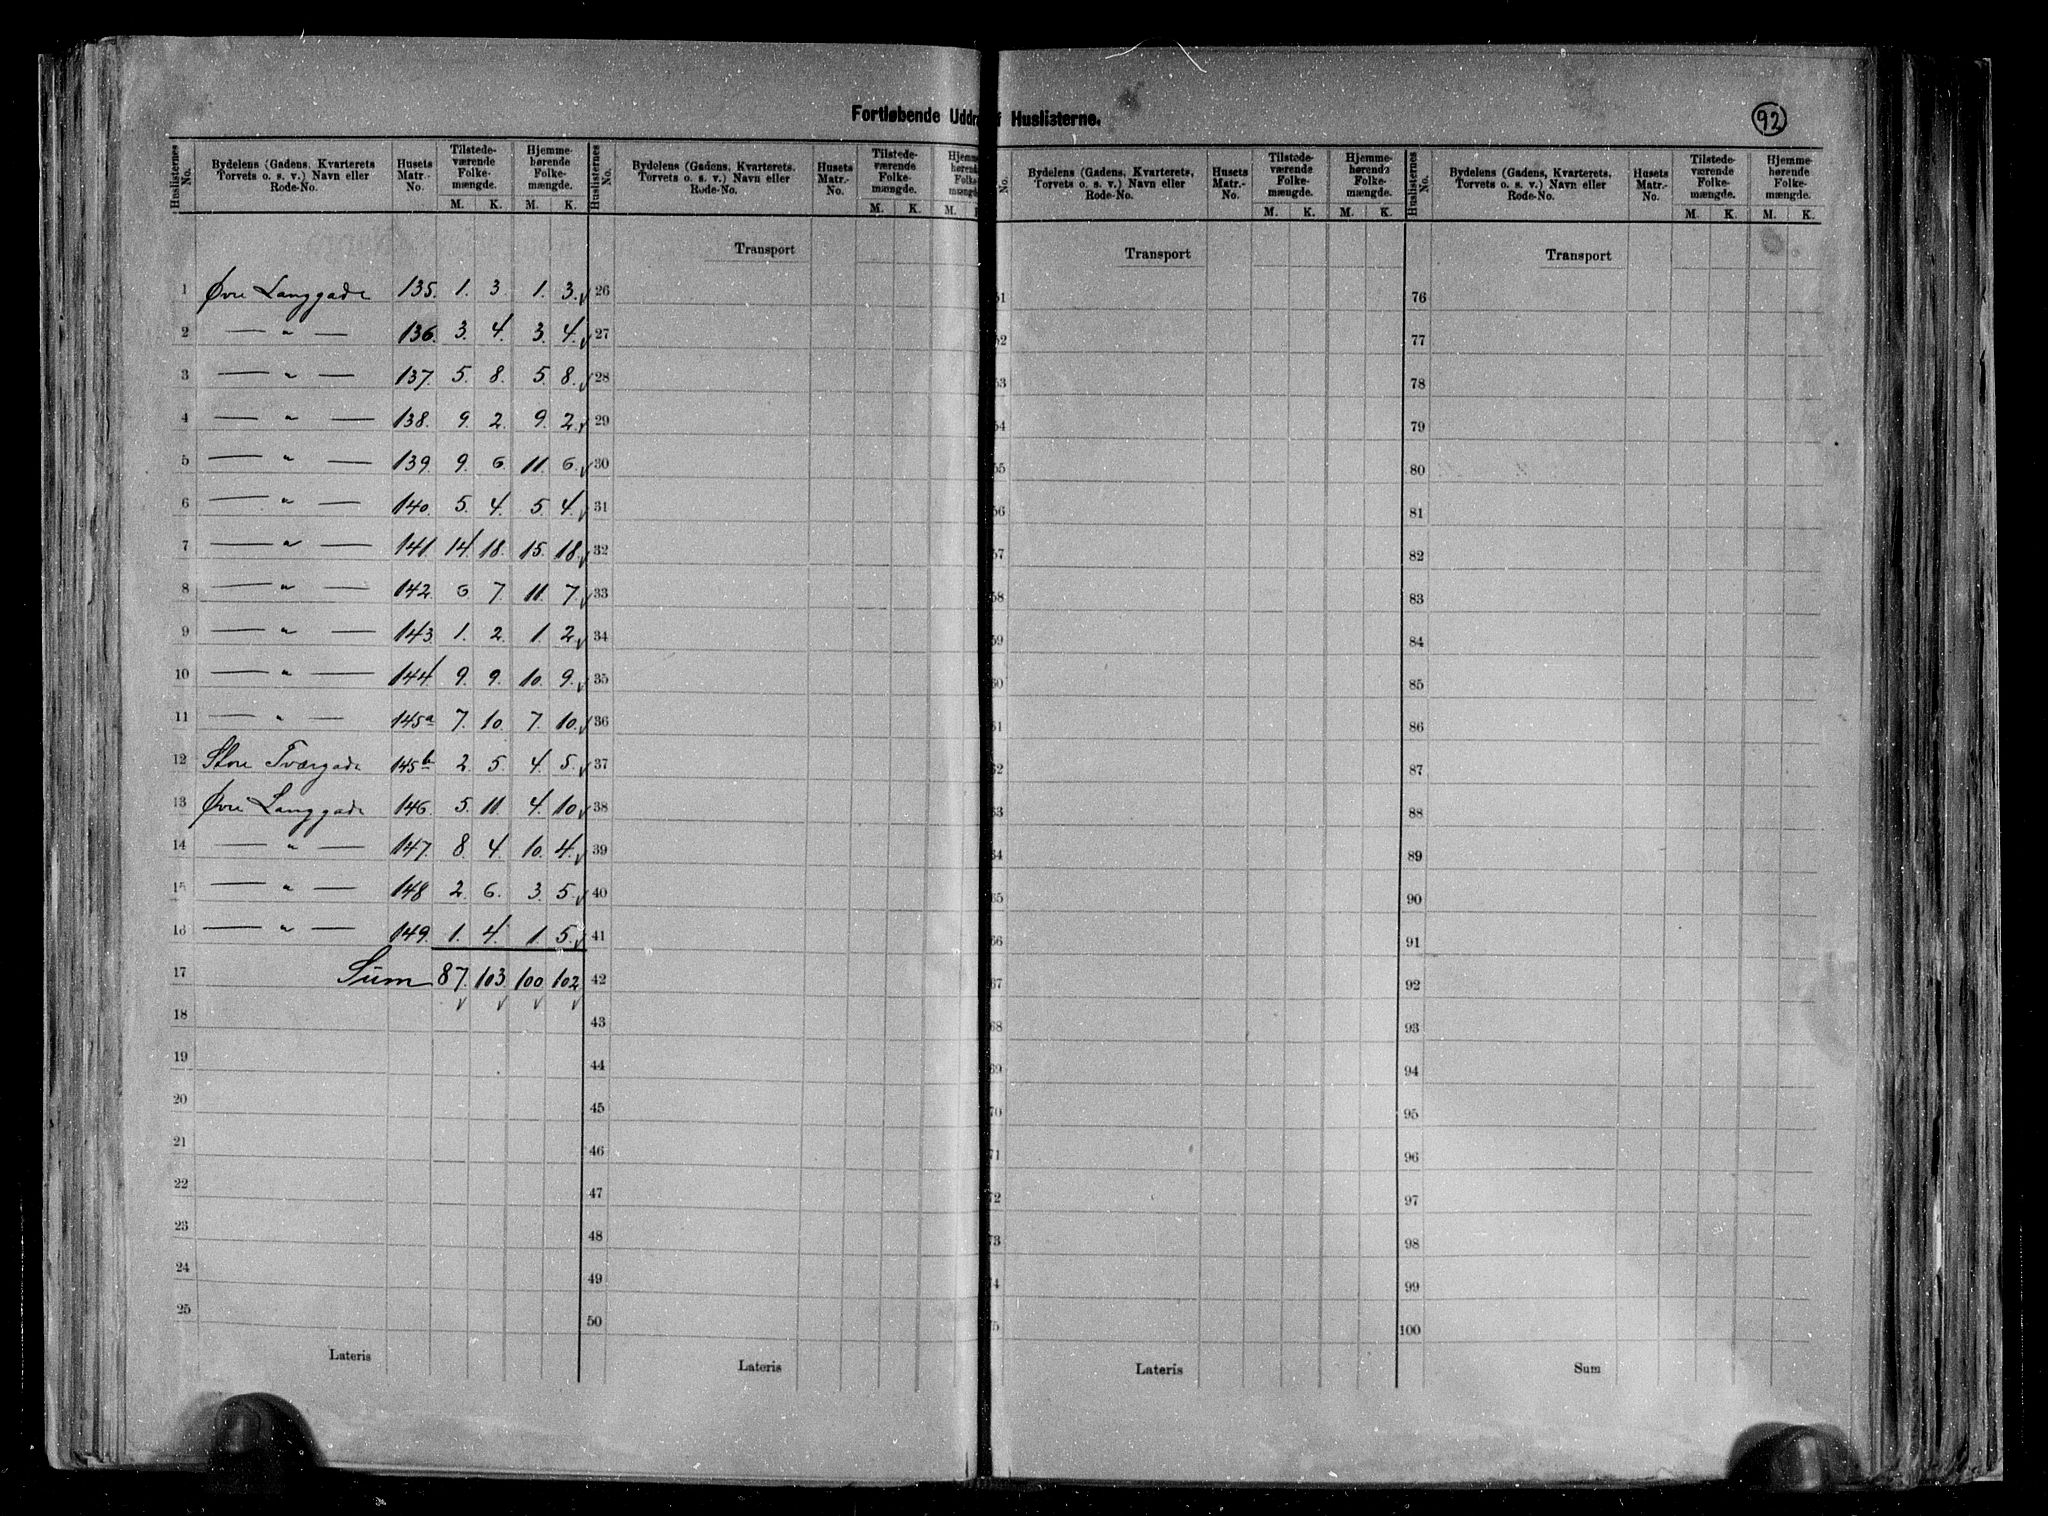 Fortløbende Uddr f Huslisterne.
92
Huslisternes No. | Bydelens (Gadens, Kvarterets Torvets o. s. v.) Navn eller Rode-No. | Husets Matr.-No. | Tilstedeværende Folkemængde. M. K. | Hjemmehørende Folkemængde. M. K.
1 Øvre Langgade 135. 1. 3. 1. 3.
2 — " — 136. 3. 4. 3. 4.
3 — " — 137. 5. 8. 5. 8.
4 — " — 138. 9. 2. 9. 2.
5 — " — 139. 9. 6. 11. 6.
6 — " — 140. 5. 4. 5. 4.
7 — " — 141. 14. 18. 15. 18.
8 — " — 142. 6. 7. 11. 7.
9 — " — 143. 1. 2. 1. 2.
10 — " — 144. 9. 9. 10. 9.
11 — " — 145a 7. 10. 7. 10.
12 Store Tværgade 145b 2. 5. 4. 5.
13 Øvre Langgade 146. 5. 11. 4. 10.
14 — " — 147. 8. 4. 10. 4.
15 — " — 148 2. 6. 3. 5.
16 — " — 149. 1. 4. 1. 5.
17 Sum 87. 103. 100. 102.
18
19
20
21
22
23
24
25
Lateris
Huslisternes No. | Bydelens (Gadens, Kvarterets, Torvets o. s. v.) Navn eller Rode-No. | Husets Matr.-No. | Tilstedeværende Folkemængde. M. K. | Hjemmehørende Folkemængde M.
Transport
26
27
28
29
30
31
32
33
34
35
36
37
38
39
40
41
42
43
44
45
46
47
48
49
50
Lateris
No. | Bydelens (Gadens, Kvarterets, Torvets o. s. v.) Navn eller Rode-No. | Husets Matr.-No. | Tilstedeværende Folkemængde. M. K. | Hjemmehørende Folkemængde. M. K.
Transport
51
52
53
54
55
56
57
58
59
60
61
62
63
64
65
66
67
68
69
70
71
72
73
74
75
Lateris
Huslisternes No. | Bydelens (Gadens, Kvarterets, Torvets o. s. v.) Navn eller Rode-No. | Husets Matr.-No. | Tilstedeværende Folkemængde. M. K. | Hjemmehørende Folkemængde. M. K.
Transport
76
77
78
79
80
81
82
83
84
85
86
87
88
89
90
91
92
93
94
95
96
97
98
99
100
Sum